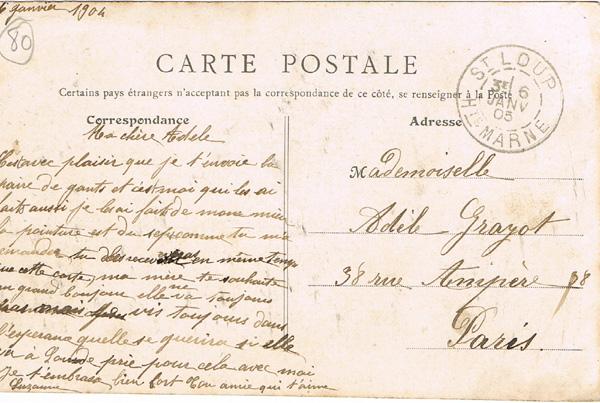 6 janvier 1904
80
CARTE POSTALE
Certains pays étrangers n'acceptent pas la correspondance de ce côté, se renseigner à la Poste
Correspondance
Adresse
ST LOUP
3E 6
JANV
05
HTE MARNE
Ma chère Adèle
C'est avec plaisir que je t'envoie la
paire de gants et c'est moi qui les ai
faits aussi je les ai faits de mon mieux
la pointure est du comme tu m'a
demander tu en même temps
que cette carte, ma mère te souhaite
un grand bonjour elle va toujours
vis toujours dans
l'esperance quelle se querira si elle
va a Lourde prie pour cela avec moi
Je t'embrasse bien fort Ton amie qui t'aime
Suzanne
Mademoiselle
Adèle Grayot
38 rue Ampère 38
Paris.